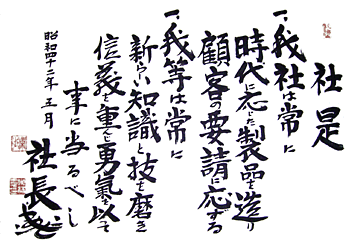 社是
一、我社は常に
時代に応じた製品を造り
顧客の要請に応ずる
一、我等は常に
新らしい知識と技を磨き
信義を重んじ勇氣を以て
事に当るべし
昭和四十二年 五月
社長